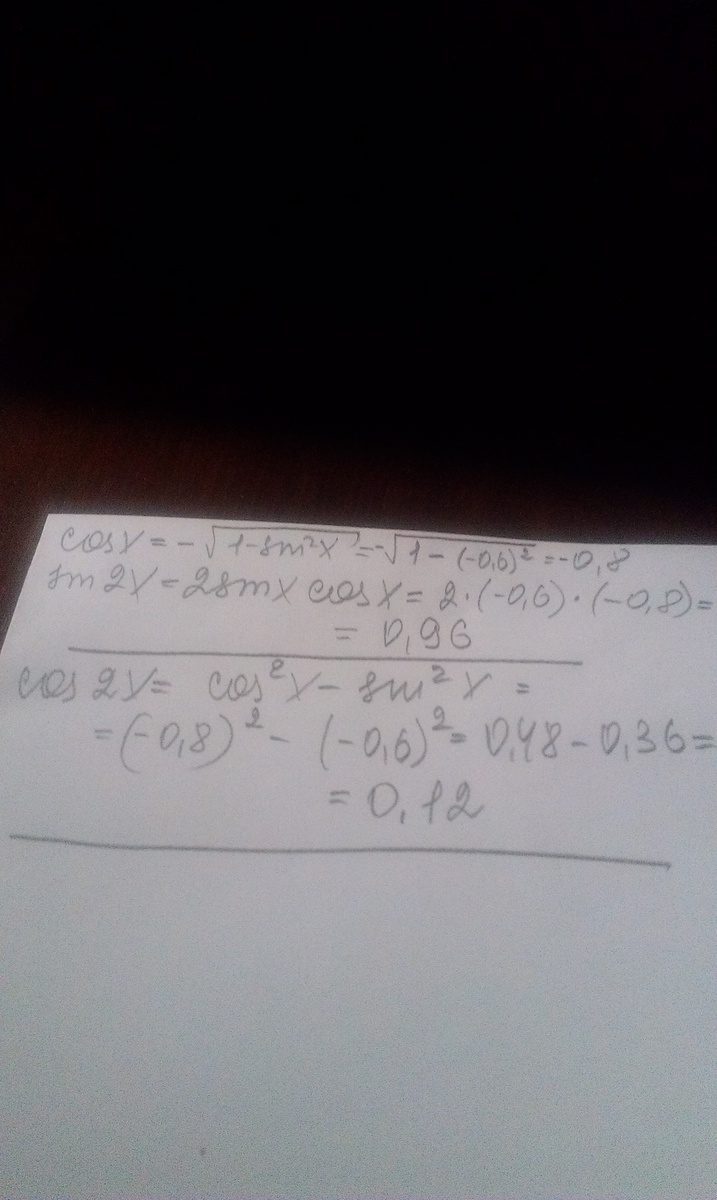 cos x = -√(1-sin²x) = -√(1-(-0,6)²) = -0,8
sin 2x = 2 sin x cos x = 2·(-0,6)·(-0,8) =
= 0,96
cos 2x = cos²x - sin²x =
= (-0,8)² - (-0,6)² = 0,48 - 0,36 =
= 0,12